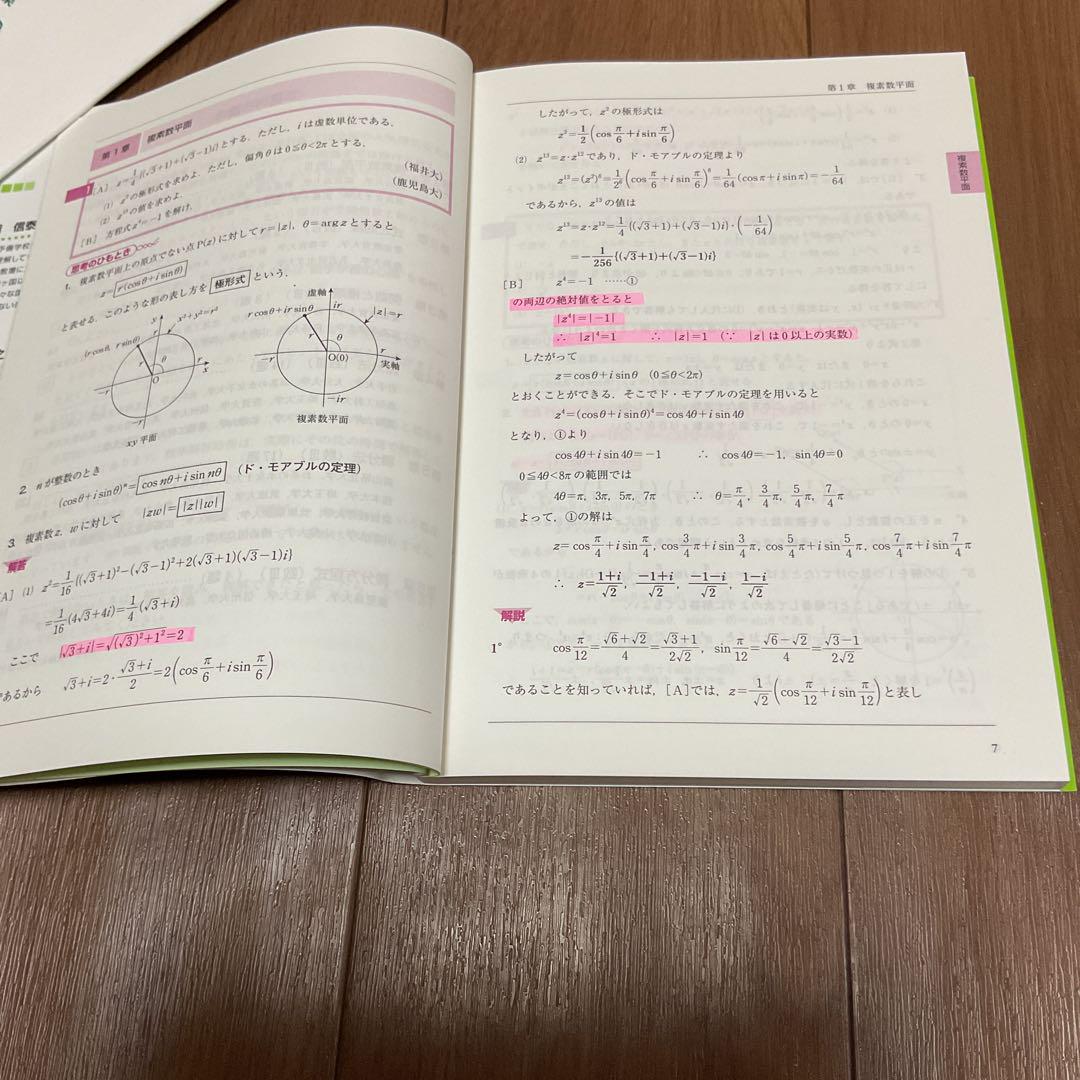 第1章 複素数平面
1 [A] z=1/4{(√3+1)+(√3−1)i}とする．ただし，iは虚数単位である．
(1) z²の極形式を求めよ．ただし，偏角θは0≦θ<2πとする．
(2) z¹³の値を求めよ．
(福井大)
[B] 方程式z⁴=−1を解け．
(鹿児島大)
思考のひもとき
1. 複素数平面上の原点でない点P(z)に対してr=|z|，θ=arg zとすると
z=r(cosθ+i sinθ)
と表せる．このような形の表し方を 極形式 という．
y
x²+y²=r²
(r cosθ, r sinθ)
r
r
θ
−r
O
r
x
−r
xy平面
虚軸
r cosθ+ir sinθ
ir
|z|=r
r
θ
−r
O(0)
r
実軸
−ir
複素数平面
2. nが整数のとき
(cosθ+i sinθ)ⁿ=cos nθ+i sin nθ (ド・モアブルの定理)
3. 複素数z，wに対して |zw|=|z||w|
解答
[A] (1) z²=1/16{(√3+1)²−(√3−1)²+2(√3+1)(√3−1)i}
=1/16(4√3+4i)=1/4(√3+i)
ここで |√3+i|=√((√3)²+1²)=2
であるから √3+i=2·(√3+i)/2=2(cos π/6+i sin π/6)
第1章 複素数平面
複素数平面
したがって，z²の極形式は
z²=1/2(cos π/6+i sin π/6)
(2) z¹³=z·z¹²であり，ド・モアブルの定理より
z¹²=(z²)⁶=1/2⁶(cos π/6+i sin π/6)⁶=1/64(cosπ+i sinπ)=−1/64
であるから，z¹³の値は
z¹³=z·z¹²=1/4{(√3+1)+(√3−1)i}·(−1/64)
=−1/256{(√3+1)+(√3−1)i}
[B] z⁴=−1 ……①
の両辺の絶対値をとると
|z⁴|=|−1|
∴ |z|⁴=1 ∴ |z|=1 (∵ |z|は0以上の実数)
したがって
z=cosθ+i sinθ (0≦θ<2π)
とおくことができる．そこでド・モアブルの定理を用いると
z⁴=(cosθ+i sinθ)⁴=cos4θ+i sin4θ
となり，①より
cos4θ+i sin4θ=−1 ∴ cos4θ=−1, sin4θ=0
0≦4θ<8πの範囲では
4θ=π, 3π, 5π, 7π ∴ θ=π/4, 3/4π, 5/4π, 7/4π
よって，①の解は
z=cos π/4+i sin π/4, cos 3/4π+i sin 3/4π, cos 5/4π+i sin 5/4π, cos 7/4π+i sin 7/4π
∴ z=(1+i)/√2, (−1+i)/√2, (−1−i)/√2, (1−i)/√2
解説
1° cos π/12=(√6+√2)/4=(√3+1)/2√2, sin π/12=(√6−√2)/4=(√3−1)/2√2
であることを知っていれば，[A]では，z=1/√2(cos π/12+i sin π/12)と表し
7